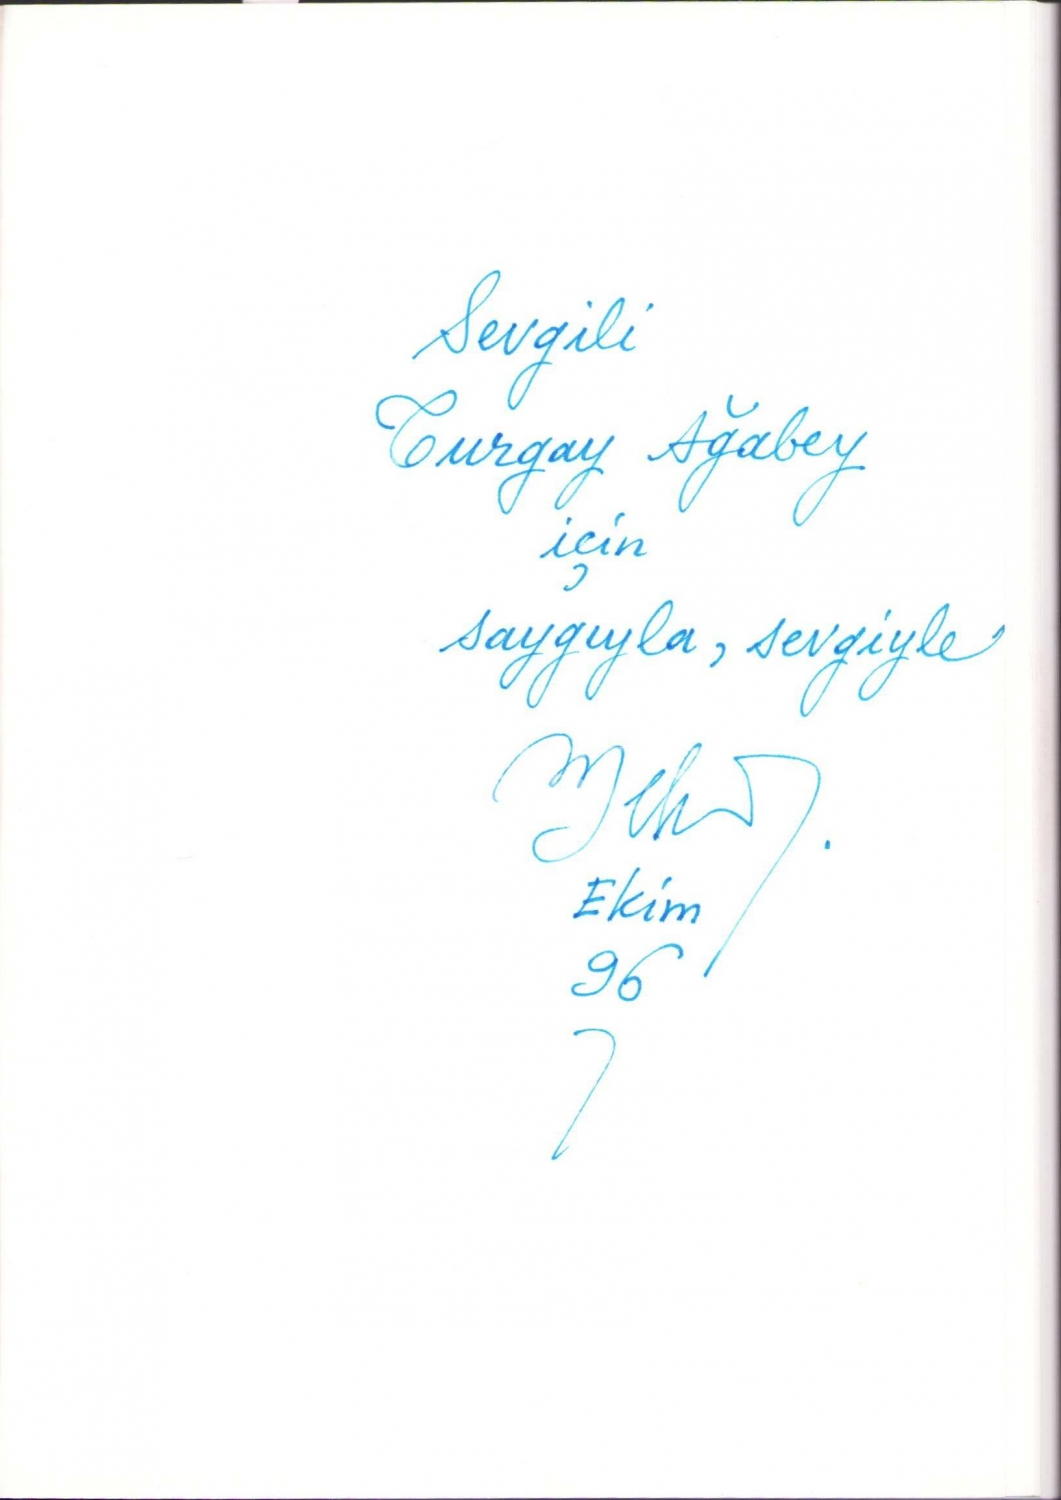 Sevgili
Turgay Ağabey
için
saygıyla, sevgiyle
Ekim
96